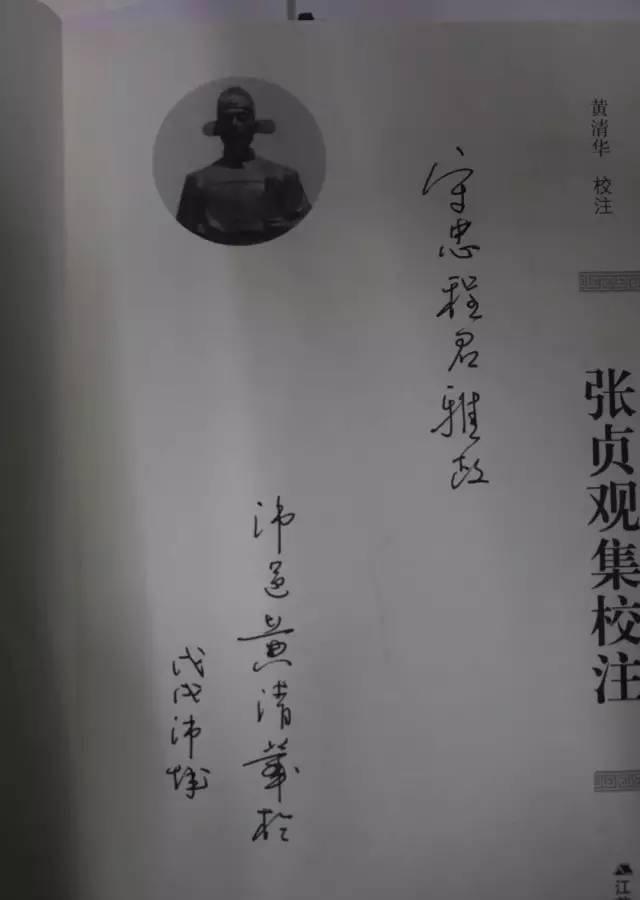 黄清华 校注
张贞观集校注
江
守忠程君雅教
沛邑黄清华於
戊戌沛城